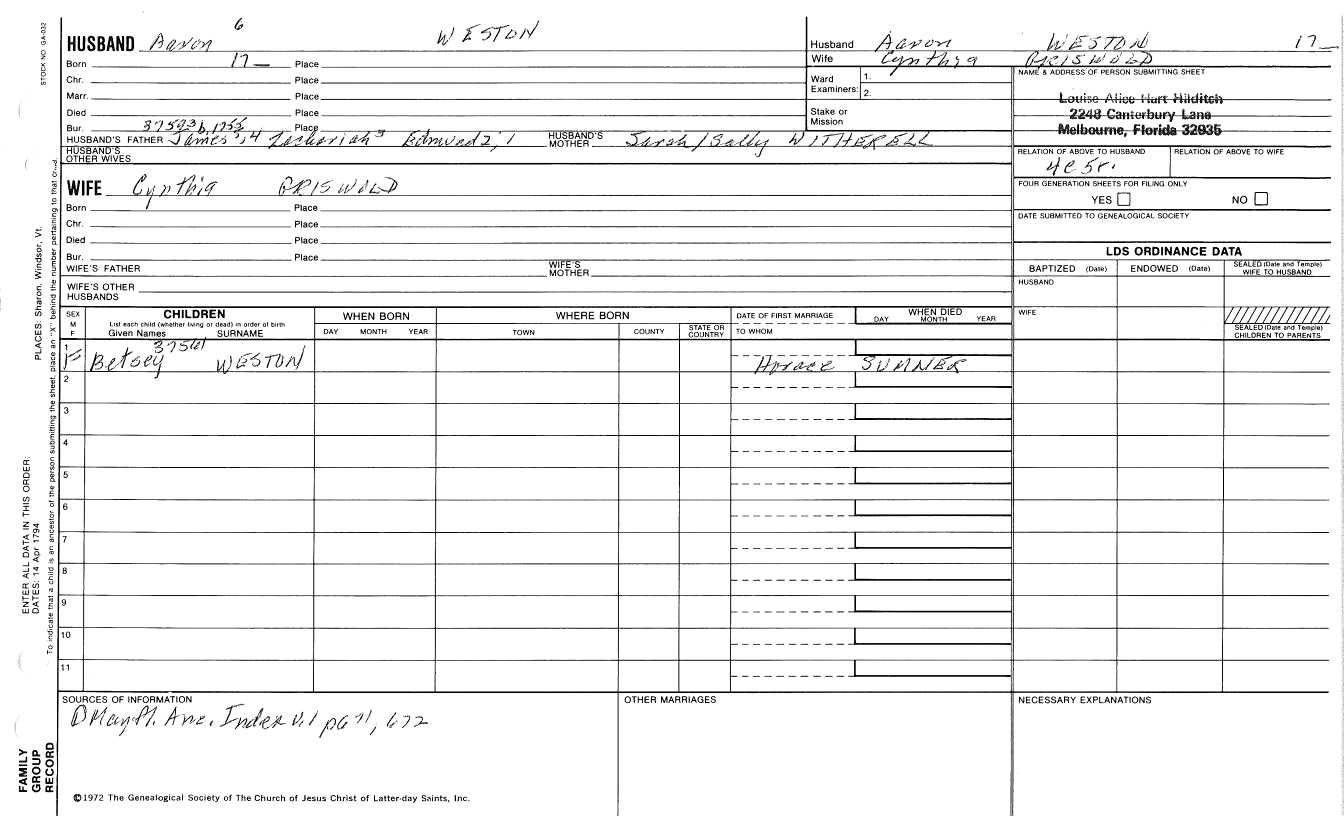 STOCK NO. GA-032
6
HUSBAND Aaron WESTON
Born 17— Place
Chr. Place
Marr. Place
Died Place
Bur. Place
HUSBAND'S FATHER James5,4 Zachariah3 Edmund2,1 HUSBAND'S MOTHER Sarah/Sally WITHERELL
HUSBAND'S OTHER WIVES
WIFE Cynthia GRISWOLD
Born Place
Chr. Place
Died Place
Bur. Place
WIFE'S FATHER WIFE'S MOTHER
WIFE'S OTHER HUSBANDS
Husband Aaron WESTON 17—
Wife Cynthia GRISWOLD
Ward Examiners: 1.
2.
Stake or Mission
NAME & ADDRESS OF PERSON SUBMITTING SHEET
Louise Alice Hart Hilditch
2248 Canterbury Lane
Melbourne, Florida 32935
RELATION OF ABOVE TO HUSBAND RELATION OF ABOVE TO WIFE
4c5r.
FOUR GENERATION SHEETS FOR FILING ONLY
YES NO
DATE SUBMITTED TO GENEALOGICAL SOCIETY
LDS ORDINANCE DATA
BAPTIZED (Date) ENDOWED (Date) SEALED (Date and Temple) WIFE TO HUSBAND
HUSBAND
WIFE
SEALED (Date and Temple) CHILDREN TO PARENTS
SEX M F
CHILDREN
List each child (whether living or dead) in order of birth
Given Names SURNAME
WHEN BORN
DAY MONTH YEAR
WHERE BORN
TOWN COUNTY STATE OR COUNTRY
DATE OF FIRST MARRIAGE
TO WHOM
WHEN DIED
DAY MONTH YEAR
37561
1 F Betsey WESTON Horace SUMNER
2
3
4
5
6
7
8
9
10
11
SOURCES OF INFORMATION
Index V.1 pg 71, 672
OTHER MARRIAGES
NECESSARY EXPLANATIONS
©1972 The Genealogical Society of The Church of Jesus Christ of Latter-day Saints, Inc.
PLACES: Sharon, Windsor, Vt.
ENTER ALL DATA IN THIS ORDER:
DATES: 14 Apr 1794
To indicate that a child is an ancestor of the person submitting the sheet, place an "X" behind the number pertaining to that child.
FAMILY
GROUP
RECORD